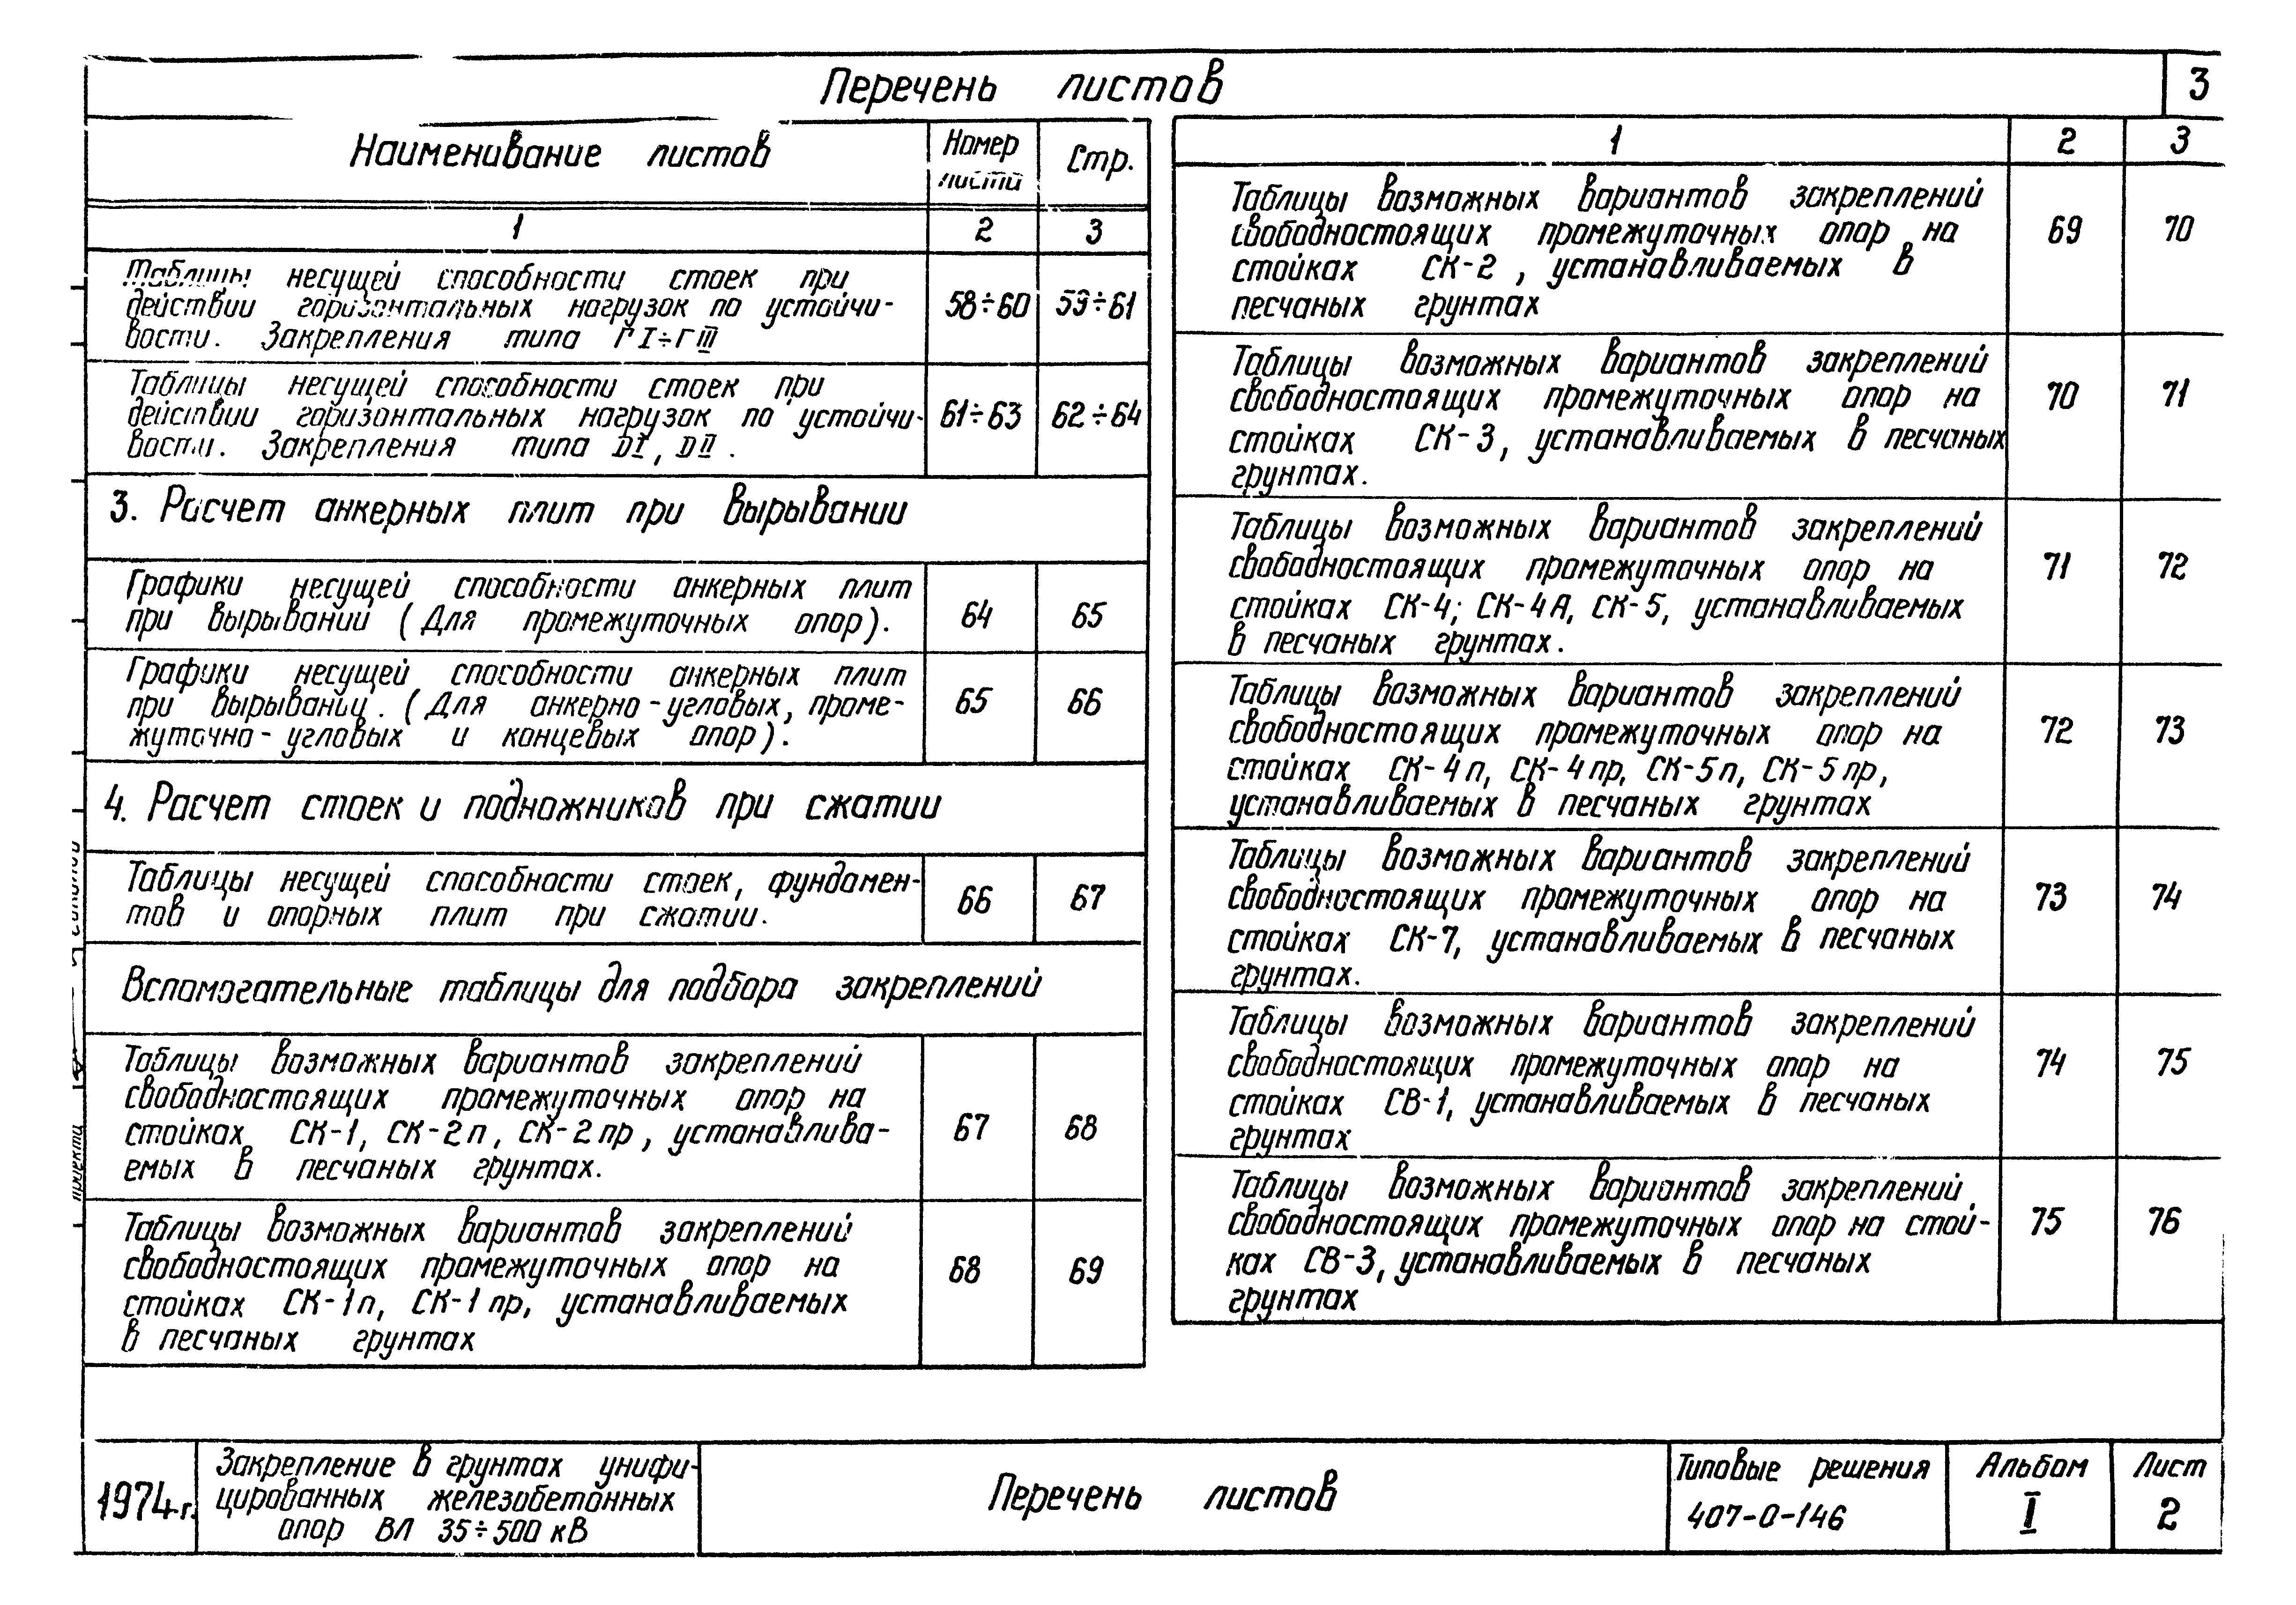 Перечень листов
3
Наименивание листов
Номер листа
Стр.
1 2 3
Таблицы несущей способности стоек при
действии горизонтальных нагрузок по устойчи-
вости. Закрепления типа ГI÷ГIII
58÷60 59÷61
Таблицы несущей способности стоек при
действии горизонтальных нагрузок по устойчи-
вости. Закрепления типа DI, DII.
61÷63 62÷64
3. Расчет анкерных плит при вырывании
Графики несущей способности анкерных плит
при вырывании (Для промежуточных опор).
64 65
Графики несущей способности анкерных плит
при вырывании. (Для анкерно-угловых, проме-
жуточно-угловых и концевых опор).
65 66
4. Расчет стоек и подножников при сжатии
Таблицы несущей способности стоек, фундамен-
тов и опорных плит при сжатии.
66 67
Вспомогательные таблицы для подбора закреплений
Таблицы возможных вариантов закреплений
свободностоящих промежуточных опор на
стойках СК-1, СК-2п, СК-2пр, устанавлива-
емых в песчаных грунтах.
67 68
Таблицы возможных вариантов закреплений
свободностоящих промежуточных опор на
стойках СК-1п, СК-1пр, устанавливаемых
в песчаных грунтах
68 69
1 2 3
Таблицы возможных вариантов закреплений
свободностоящих промежуточных опор на
стойках СК-2, устанавливаемых в
песчаных грунтах
69 70
Таблицы возможных вариантов закреплений
свободностоящих промежуточных опор на
стойках СК-3, устанавливаемых в песчаных
грунтах.
70 71
Таблицы возможных вариантов закреплений
свободностоящих промежуточных опор на
стойках СК-4; СК-4А, СК-5, устанавливаемых
в песчаных грунтах.
71 72
Таблицы возможных вариантов закреплений
свободностоящих промежуточных опор на
стойках СК-4п, СК-4пр, СК-5п, СК-5пр,
устанавливаемых в песчаных грунтах
72 73
Таблицы возможных вариантов закреплений
свободностоящих промежуточных опор на
стойках СК-7, устанавливаемых в песчаных
грунтах.
73 74
Таблицы возможных вариантов закреплений
свободностоящих промежуточных опор на
стойках СВ-1, устанавливаемых в песчаных
грунтах
74 75
Таблицы возможных вариантов закреплений
свободностоящих промежуточных опор на стой-
ках СВ-3, устанавливаемых в песчаных
грунтах
75 76
1974г.
Закрепление в грунтах унифи-
цированных железобетонных
опор ВЛ 35÷500 кВ
Перечень листов
Типовые решения
407-0-146
Альбом
I
Лист
2